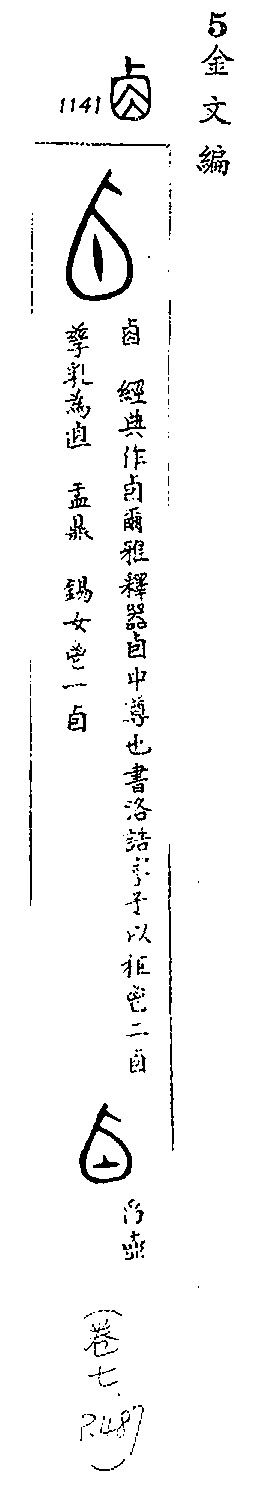 5金文編
1141 卣
卣 經典作卣爾雅釋器卣中尊也書洛誥予以秬鬯二卣
孳乳為卣 盂鼎 錫女鬯一卣
(卷七 P.487)